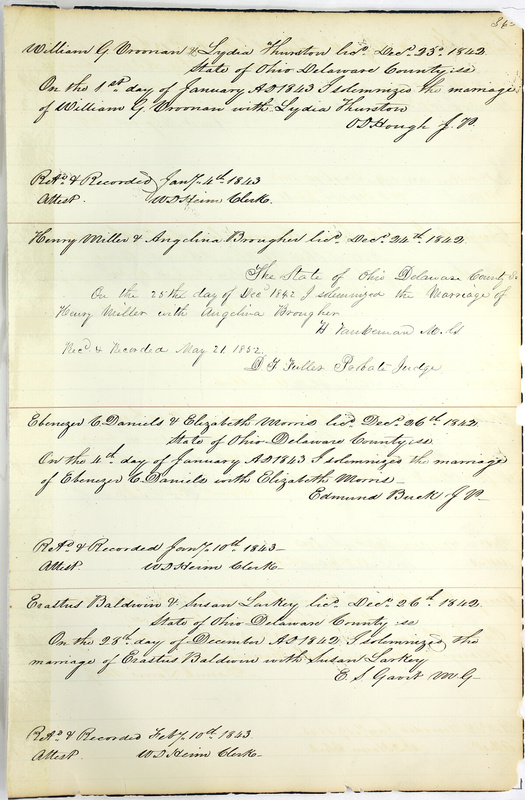 William G Vroonan & Lydia Thurston licd Decr 23d 1842
State of Ohio Delaware County ss
On the 1st day of January AD 1843 I solemnized the marriage
of William G Vroonan with Lydia Thurston
O D Hough J. P.
Retd & Recorded Jany 4th 1843
Attest. W D Heim Clerk.
Henry Miller & Angelina Brougher licd Decr 24th 1842
The State of Ohio Delaware County Ss
On the 25th day of Decr 1842 I solemnized the Marriage of
Henry Miller with Angelina Brougher
H Vankeman M. G
Recd & Recorded May 21 1852
D T Fuller Probate Judge
Ebenezer C. Daniels & Elizabeth Morris licd Decr 26th 1842
State of Ohio Delaware County ss
On the 4th day of January AD 1843 I solemnized the marriage
of Ebenezer C. Daniels with Elizabeth Morris
Edmund Buck J P.
Retd & Recorded Jany 10th 1843
Attest. W D Heim Clerk
Erastus Baldwin & Susan Larkey licd Decr 26th 1842
State of Ohio Delaware County ss
On the 28th day of December AD 1842 I solemnized the
marriage of Erastus Baldwin with Susan Larkey
E. S Gavit M G
Retd & Recorded Feby 10th 1843
Attest W D Heim Clerk